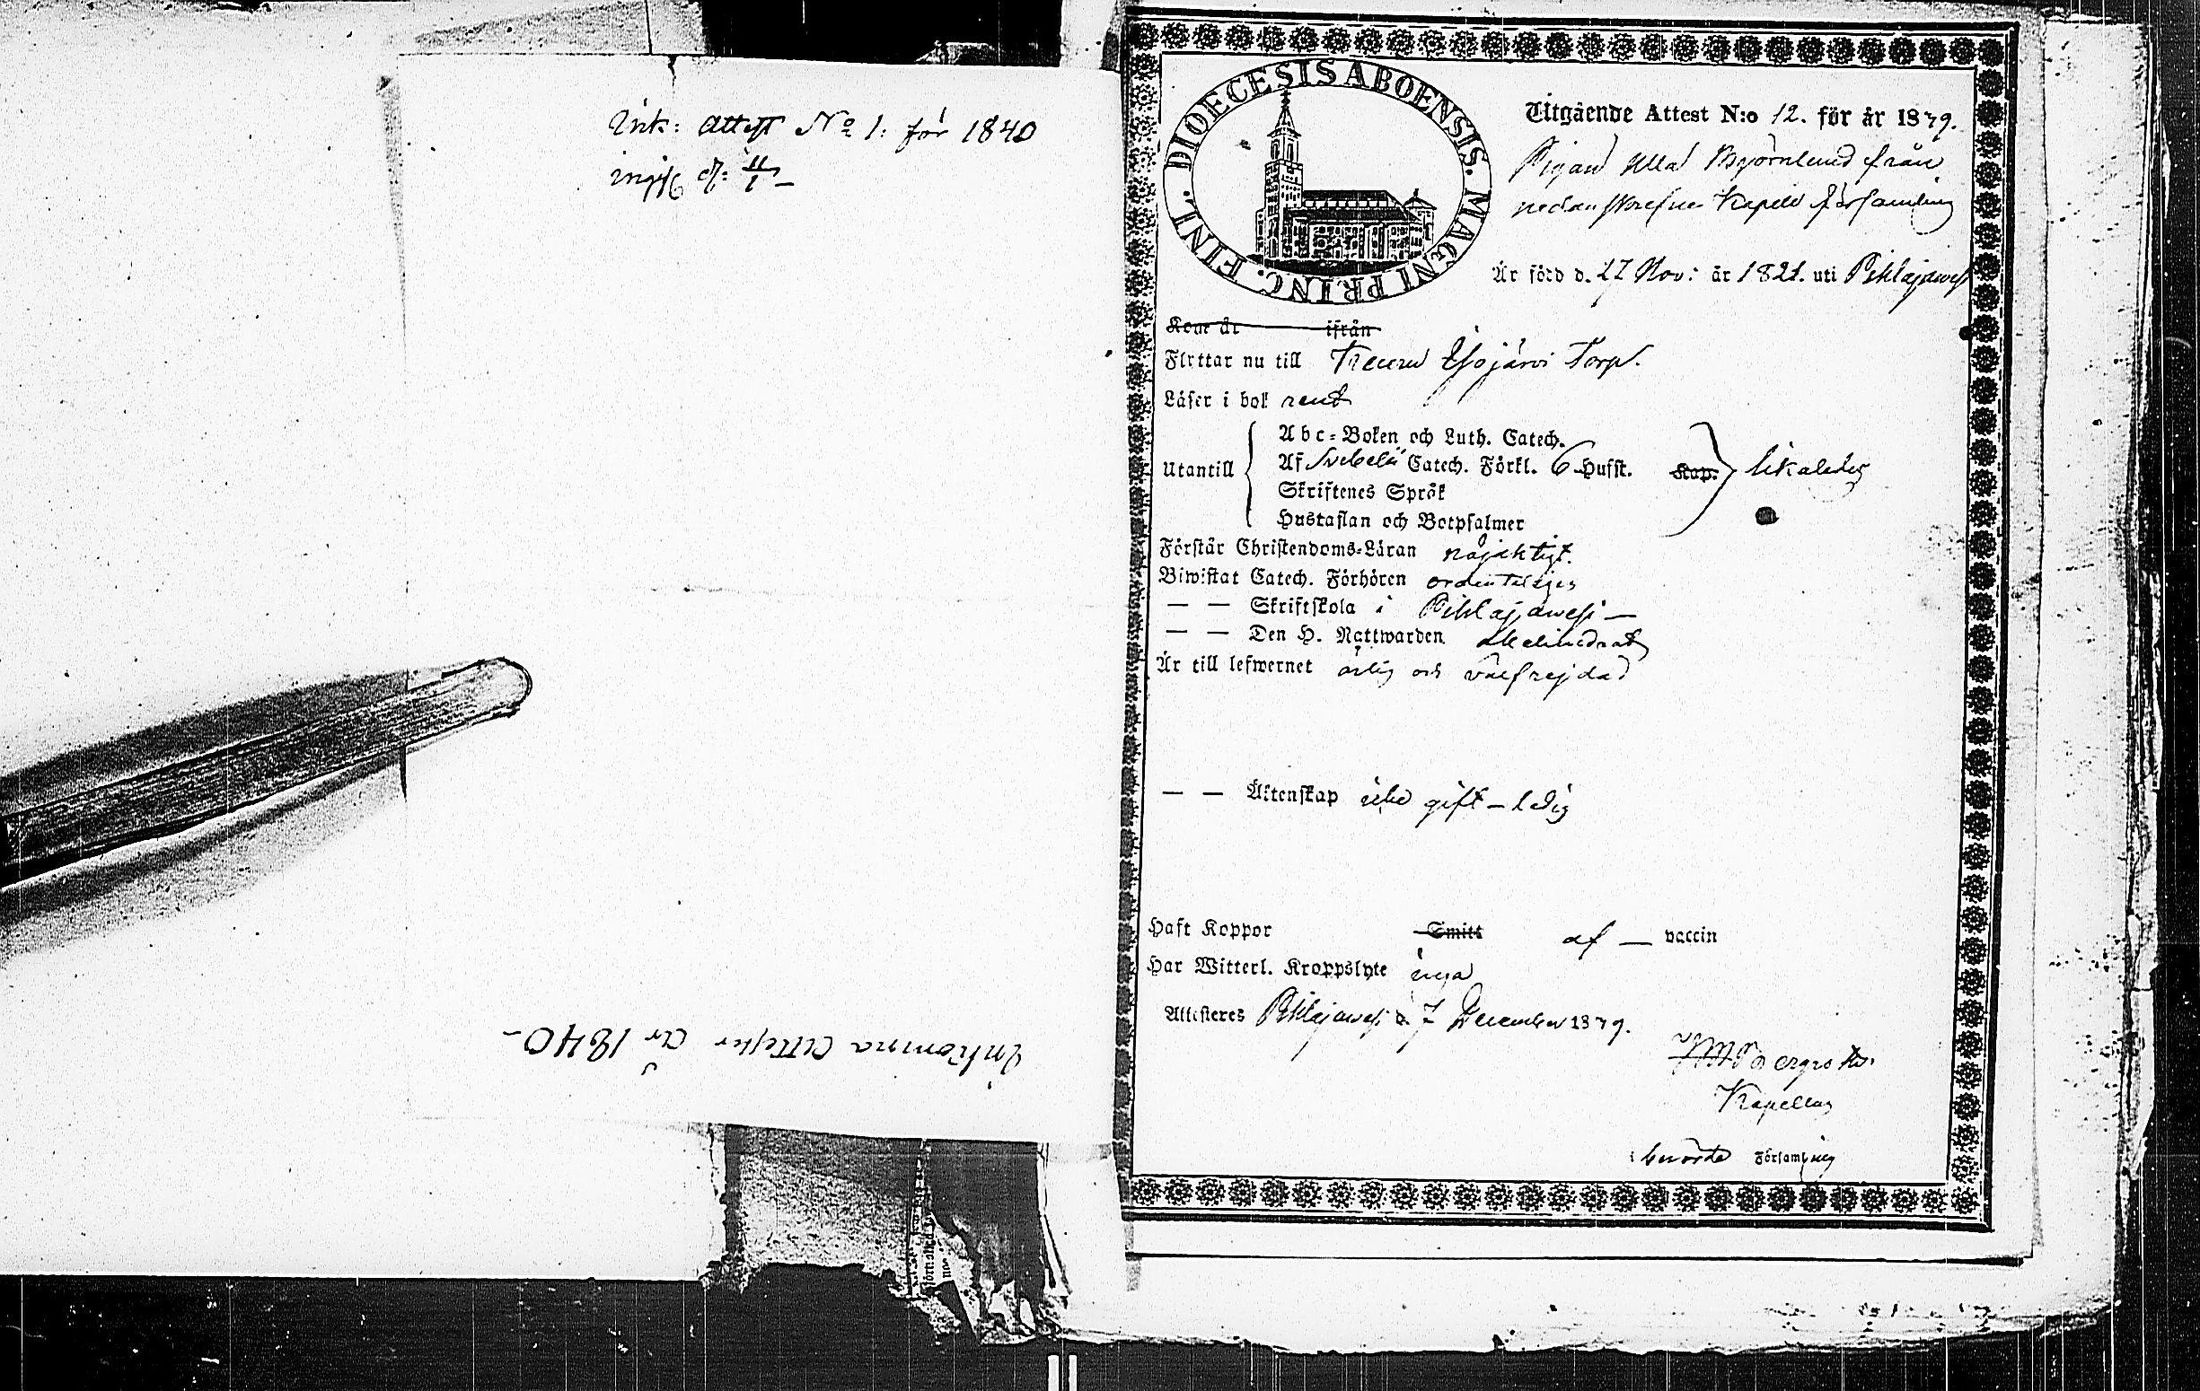 Ink: Attest No 1. för 1840
ingifs d: 11/1 —
Inkomna Attester År 1840 —
DIOECESIS ABOENSIS. MAGNI PRINC. FINL.
Utgående Attest N:o 12. för år 1839.
Pigan Ulla Björnlund från
nedanskrefne Kapell församling
Är född d. 27 Nov: år 1821. uti Pihlajawesi
Kom år ifrån
Flyttar nu till Keuru Isojärvi Torp.
Läser i bok rent
Utantill
Abc-Boken och Luth. Catech.
Af Svebelii Catech. Förkl. 6 Hufst. Kap. likaledes
Skriftenes Språk
Hustaflan och Botpsalmer
Förstår Christendoms-Läran nöjaktigt.
Biwistat Catech. Förhören ordenteligen
— — Skriftskola i Pihlajawesi —
— — Den H. Nattwarden obehindrat
Är till lefwernet ärlig och välfrejdad
— — Äktenskap icke gift — ledig
Haft Koppor Smitt af — vaccin
Har Witterl. Kroppslyte inga
Attesteres Pihlajawesi d. 7 December 1839.
Bergroth.
Kapellan
i berörde Församling